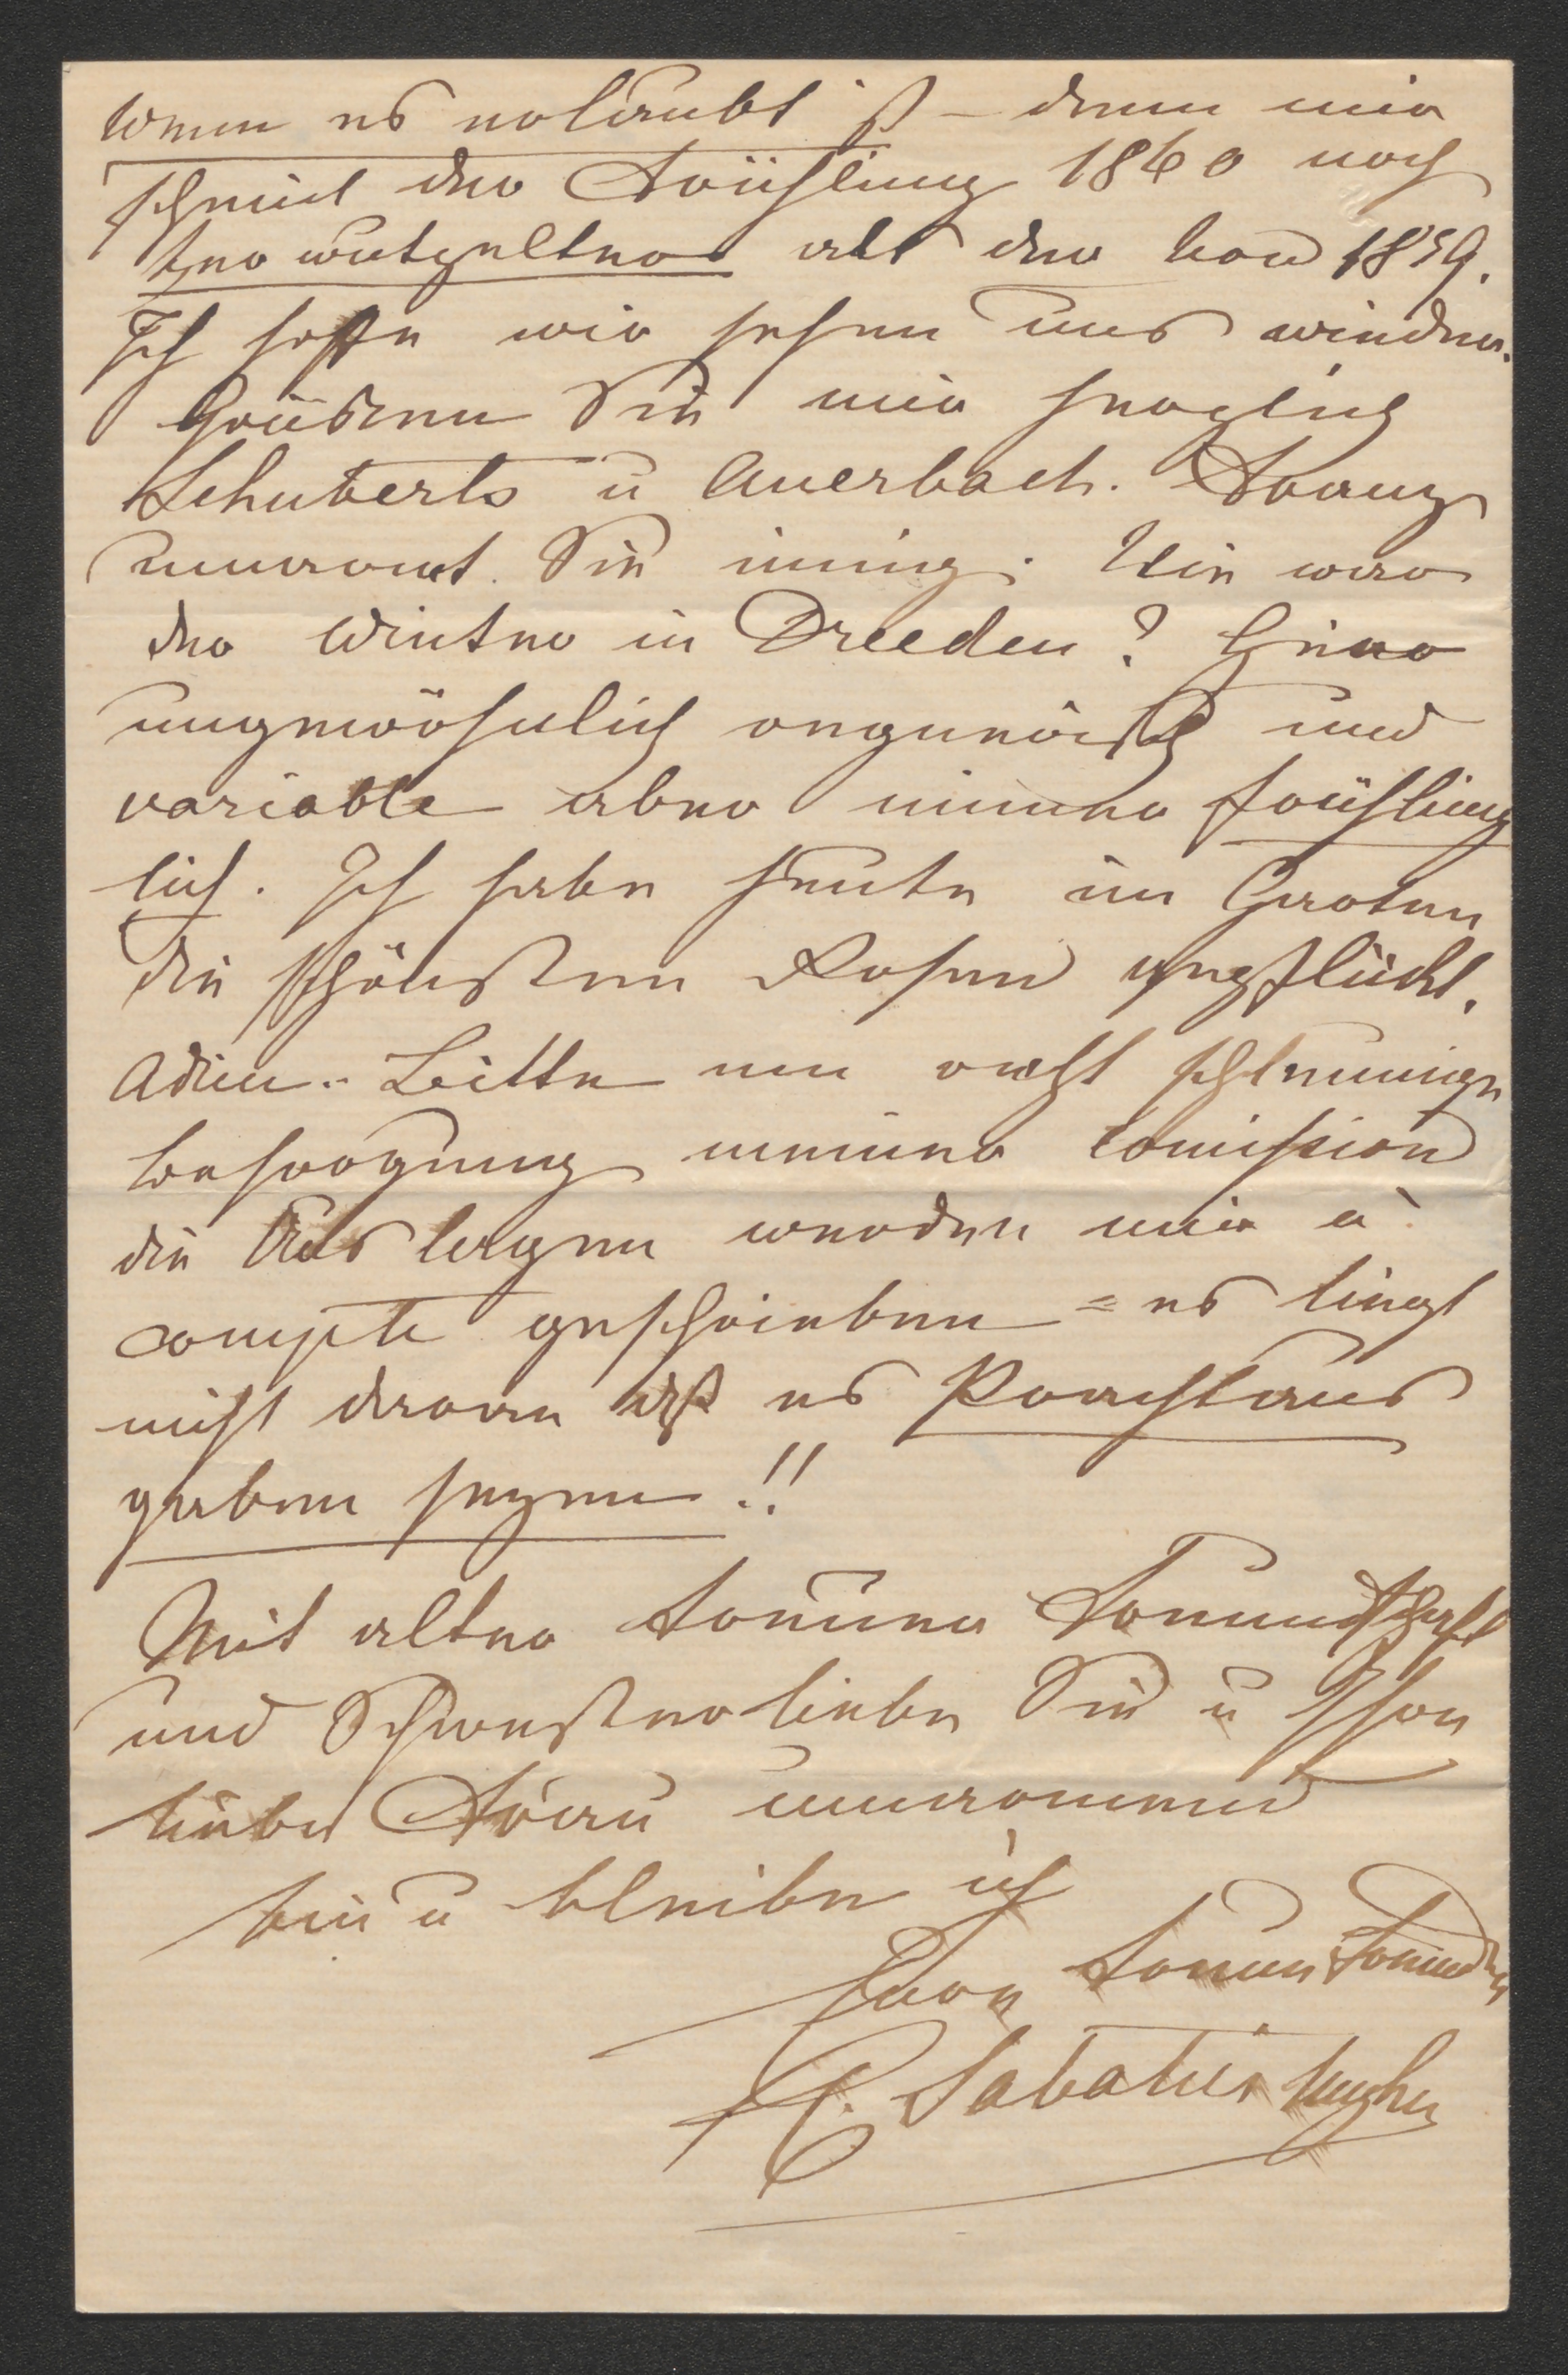 wenn es erlaubt ist – denn mir
scheint der Frühling 1860 noch
ter als der von 1859.
Ich hoffe wir sehen uns wieder.
Grüßen Sie mir herzlich
Schuberts u Auerbach. Franz
umarmt Sie innig. Wie war
der Winter in Dresden? Hier
ungewöhnlich und
variable aber immer frühling
lich. Ich habe heute im Garten
die schönsten Rosen gepflückt.
Adieu. Bitte um recht schleunige
besorgung meiner Comission
die Auslagen werden mir à
compte geschrieben = es liegt
nicht daran daß es Prachtaus
gaben seyen!!
Mit alter treuer Freundschaft
und Schwesterliebe Sie u Ihre
liebe Frau umarmend
bin u bleibe ich
Ihre treue Freundin
C. Sabatier Ungher